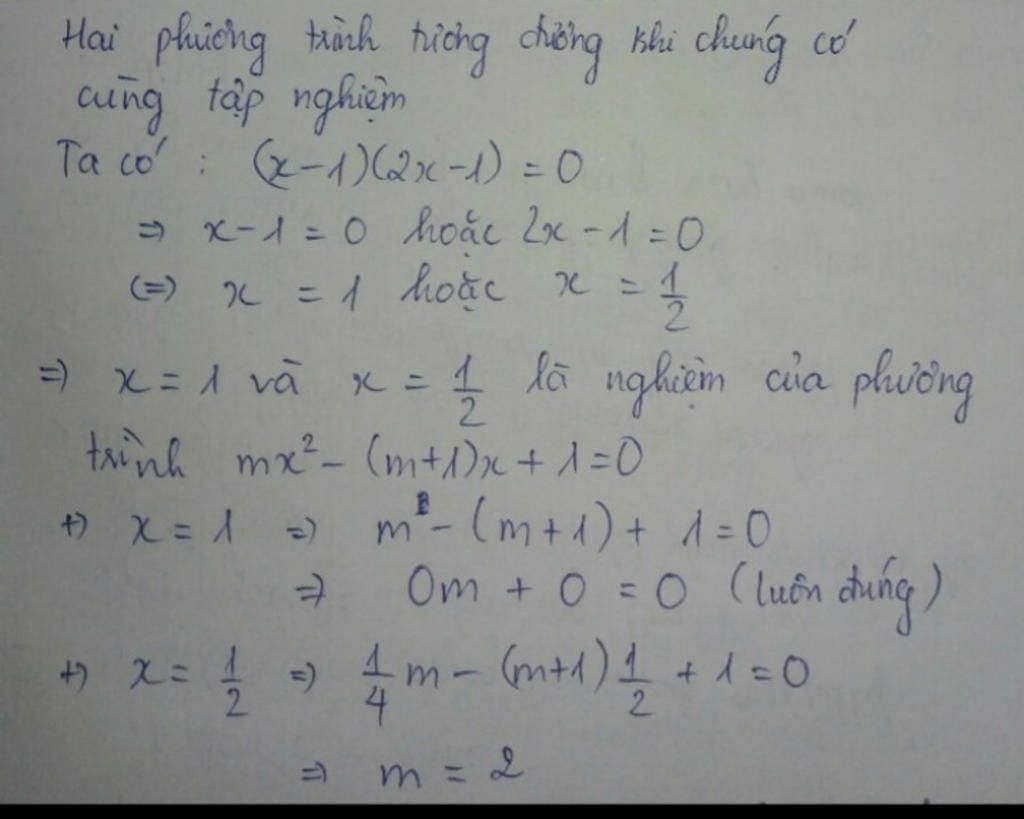 Hai phương trình tương đương khi chúng có
cùng tập nghiệm
Ta có : (x-1)(2x-1) = 0
⇒ x-1 = 0 hoặc 2x-1 = 0
(=) x = 1 hoặc x = 1/2
⇒ x = 1 và x = 1/2 là nghiệm của phương
trình mx² - (m+1)x + 1 = 0
+) x = 1 ⇒ m - (m+1) + 1 = 0
⇒ 0m + 0 = 0 (luôn đúng)
+) x = 1/2 ⇒ 1/4 m - (m+1) 1/2 + 1 = 0
⇒ m = 2